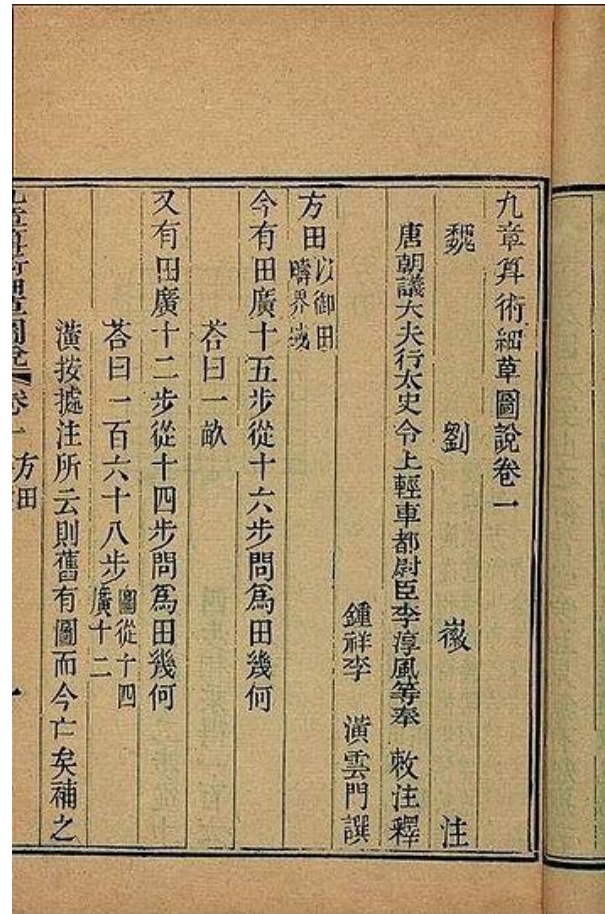 九章算術細草圖說卷一
魏　劉　徽　注
唐朝議大夫行太史令上輕車都尉臣李淳風等奉　敕注釋
鍾祥李　潢雲門譔
方田以御田疇界域
今有田廣十五步從十六步問爲田幾何
荅曰一畝
又有田廣十二步從十四步問爲田幾何
荅曰一百六十八步圖從十四廣十二
潢按據注所云則舊有圖而今亡矣補之
九章算術細草圖說　卷一方田　一